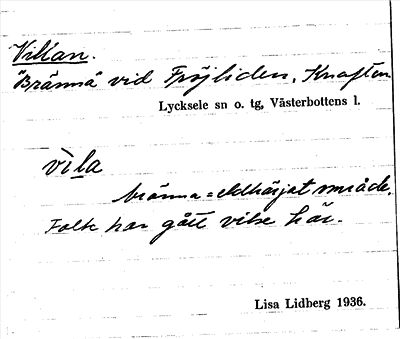 Villan.
"Bränna" vid Fröjliden, Knaften
Lycksele sn o. tg, Västerbottens l.
vila
bränna = eldhärjat område.
Folk har gått vilse här.
Lisa Lidberg 1936.